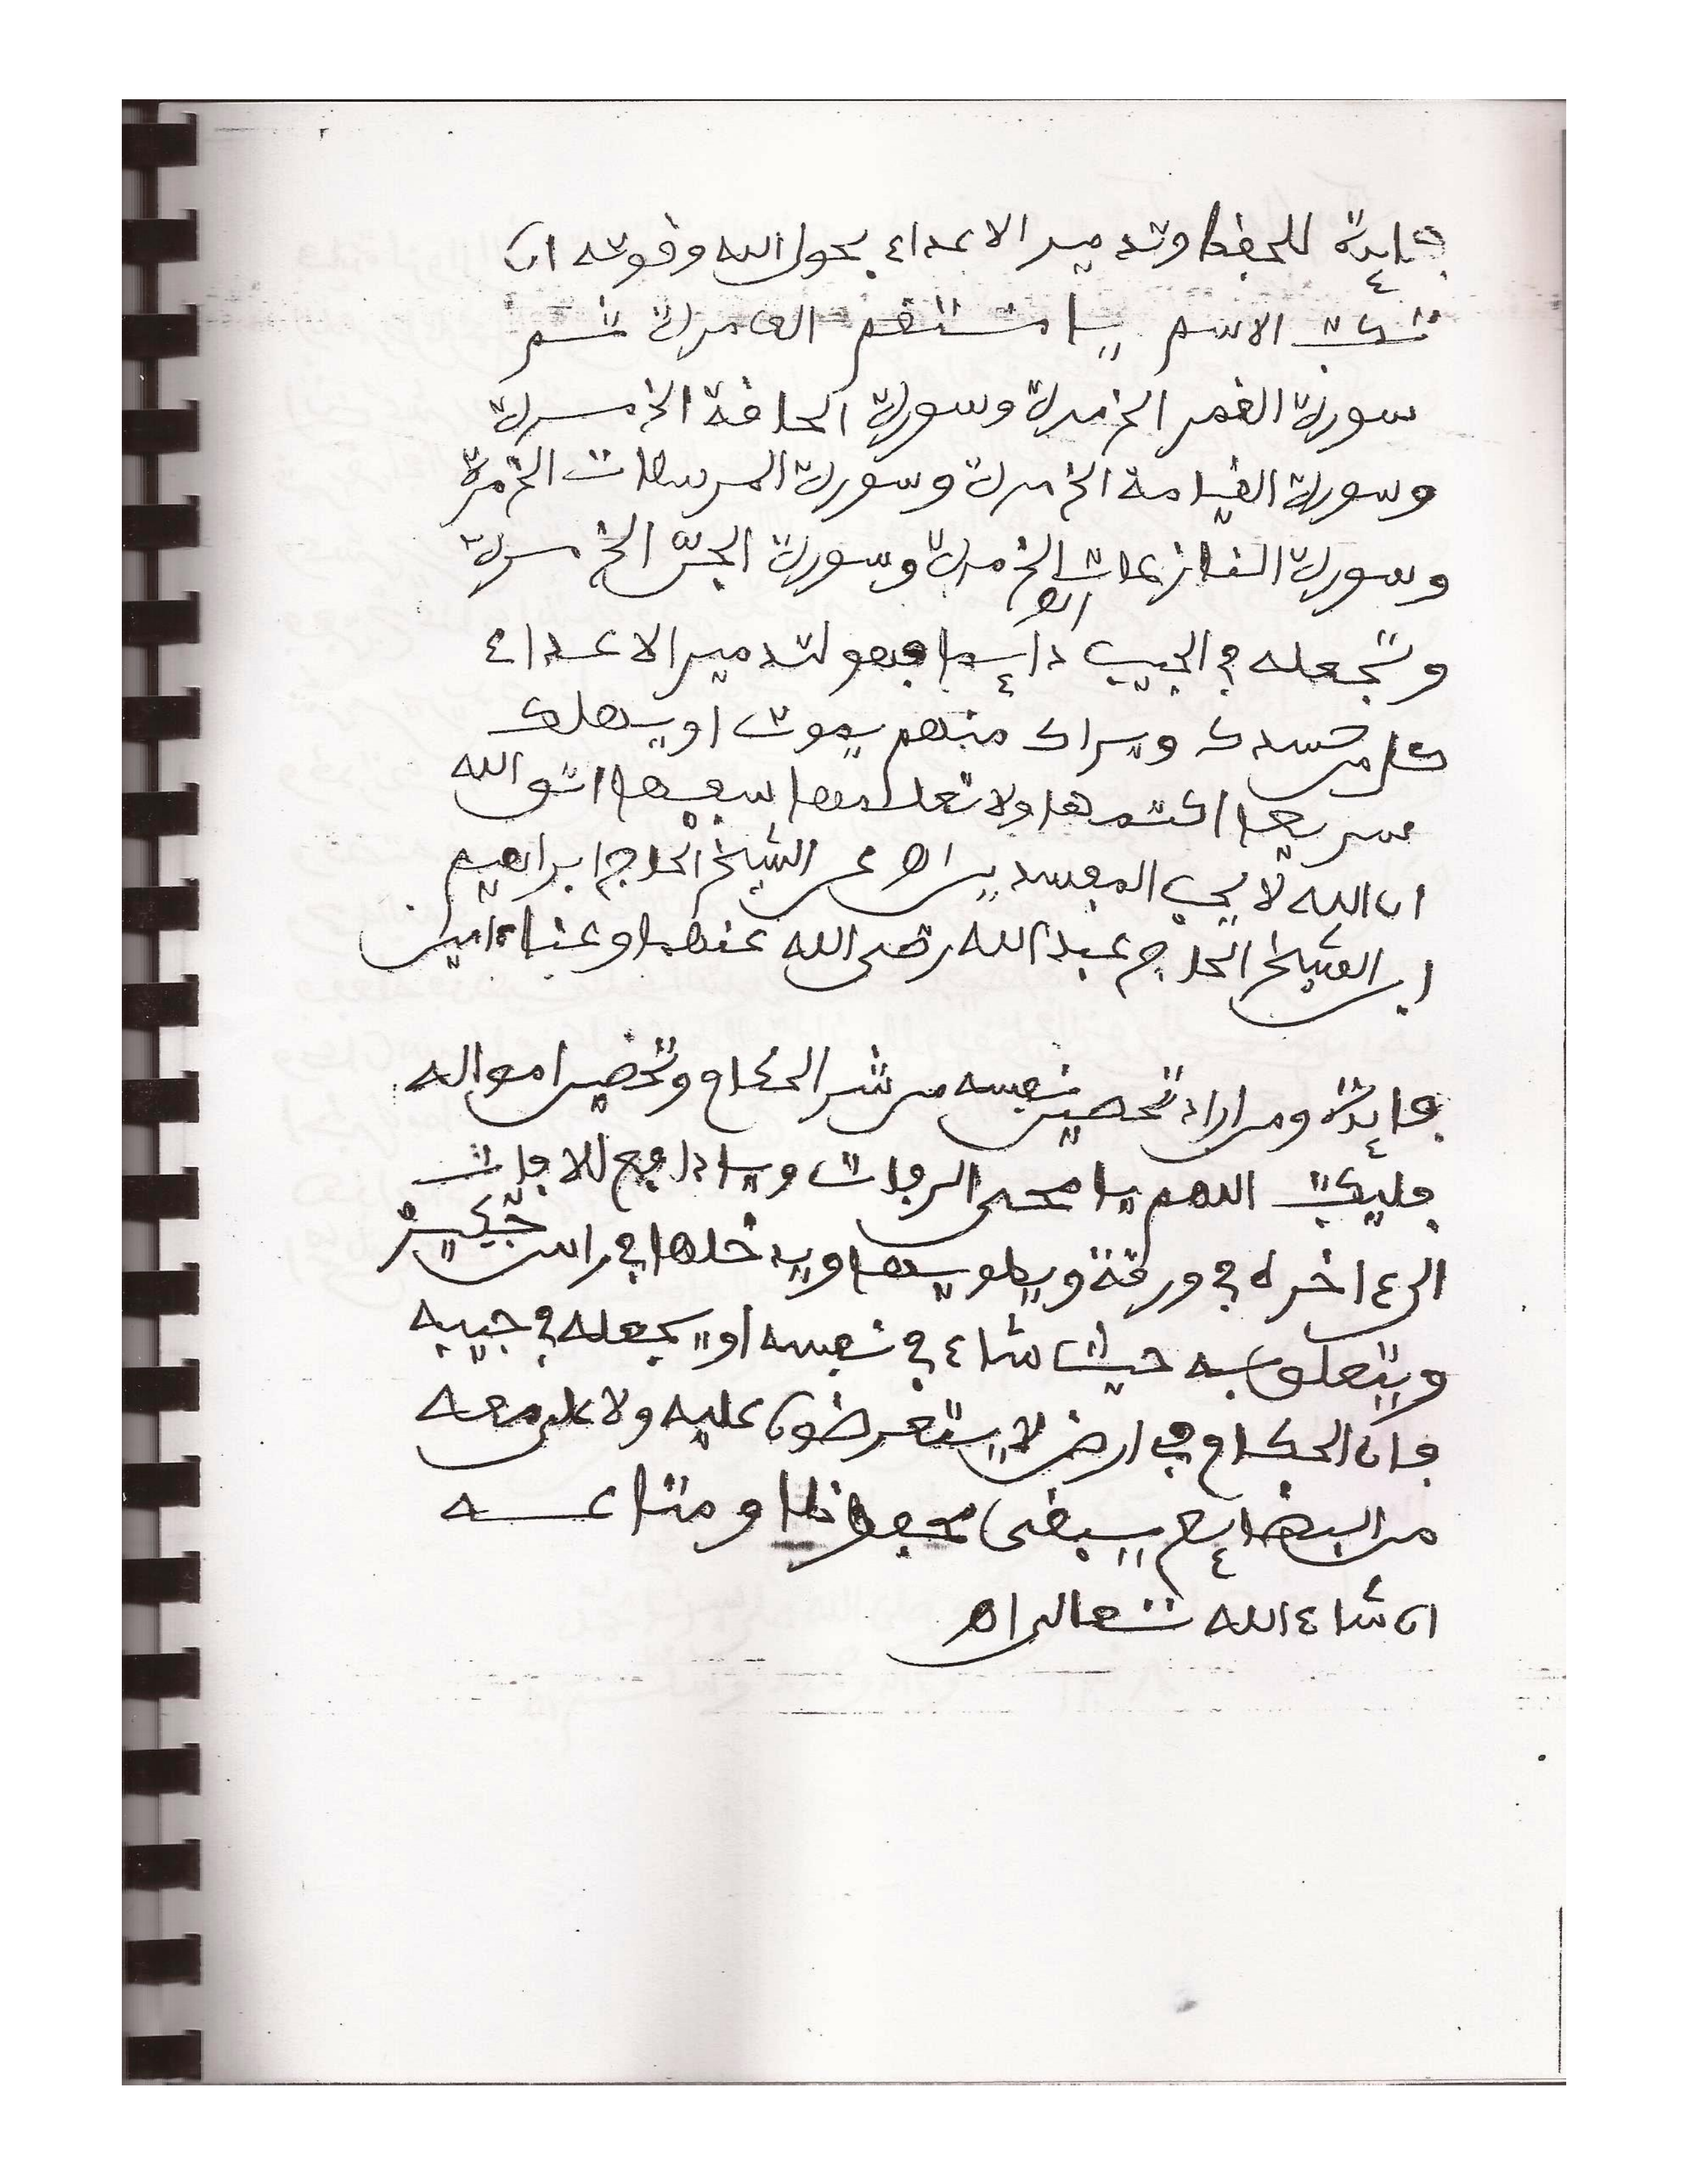 فايدة للحفظ وتدمير الاعداء بحول الله وقوته ان
تكتب الاسم يا منتقم الف مرة ثم
سورة القمر الخ مرة وسورة الحاقة الخ مرة
وسورة القيامة الخ مرة وسورة المرسلات الخ مرة
وسورة النازعات الخ مرة وسورة الجن الخ مرة
وتجعله في الجيب دايما فهو لتدمير الاعداء
كل من حسدك ويراك منهم يموت او يهلك
سريعا اكتمها ولا تعلمها سفيها اتق الله
ان الله لا يحب المفسدين اه عن الشيخ الحاج ابراهيم
ابن الشيخ الحاج عبد الله رضى الله عنهما وعنا ءامين
فايدة ومن اراد تحصين نفسه من شر الحكام وتحضير امواله
فليكتب اللهم يا محى الرفات ويا دافع للافات
الى ءاخره في ورقة ويطويها ويدخلها في راس
ويتعلق به حيث شاء في نفسه او يجعله في جيبه
فان الحكام في ارض لا يستعرضون عليه ولا على معه
من البضايع يبقى محفوظا ومتاعه
ان شاء الله تعالى اه